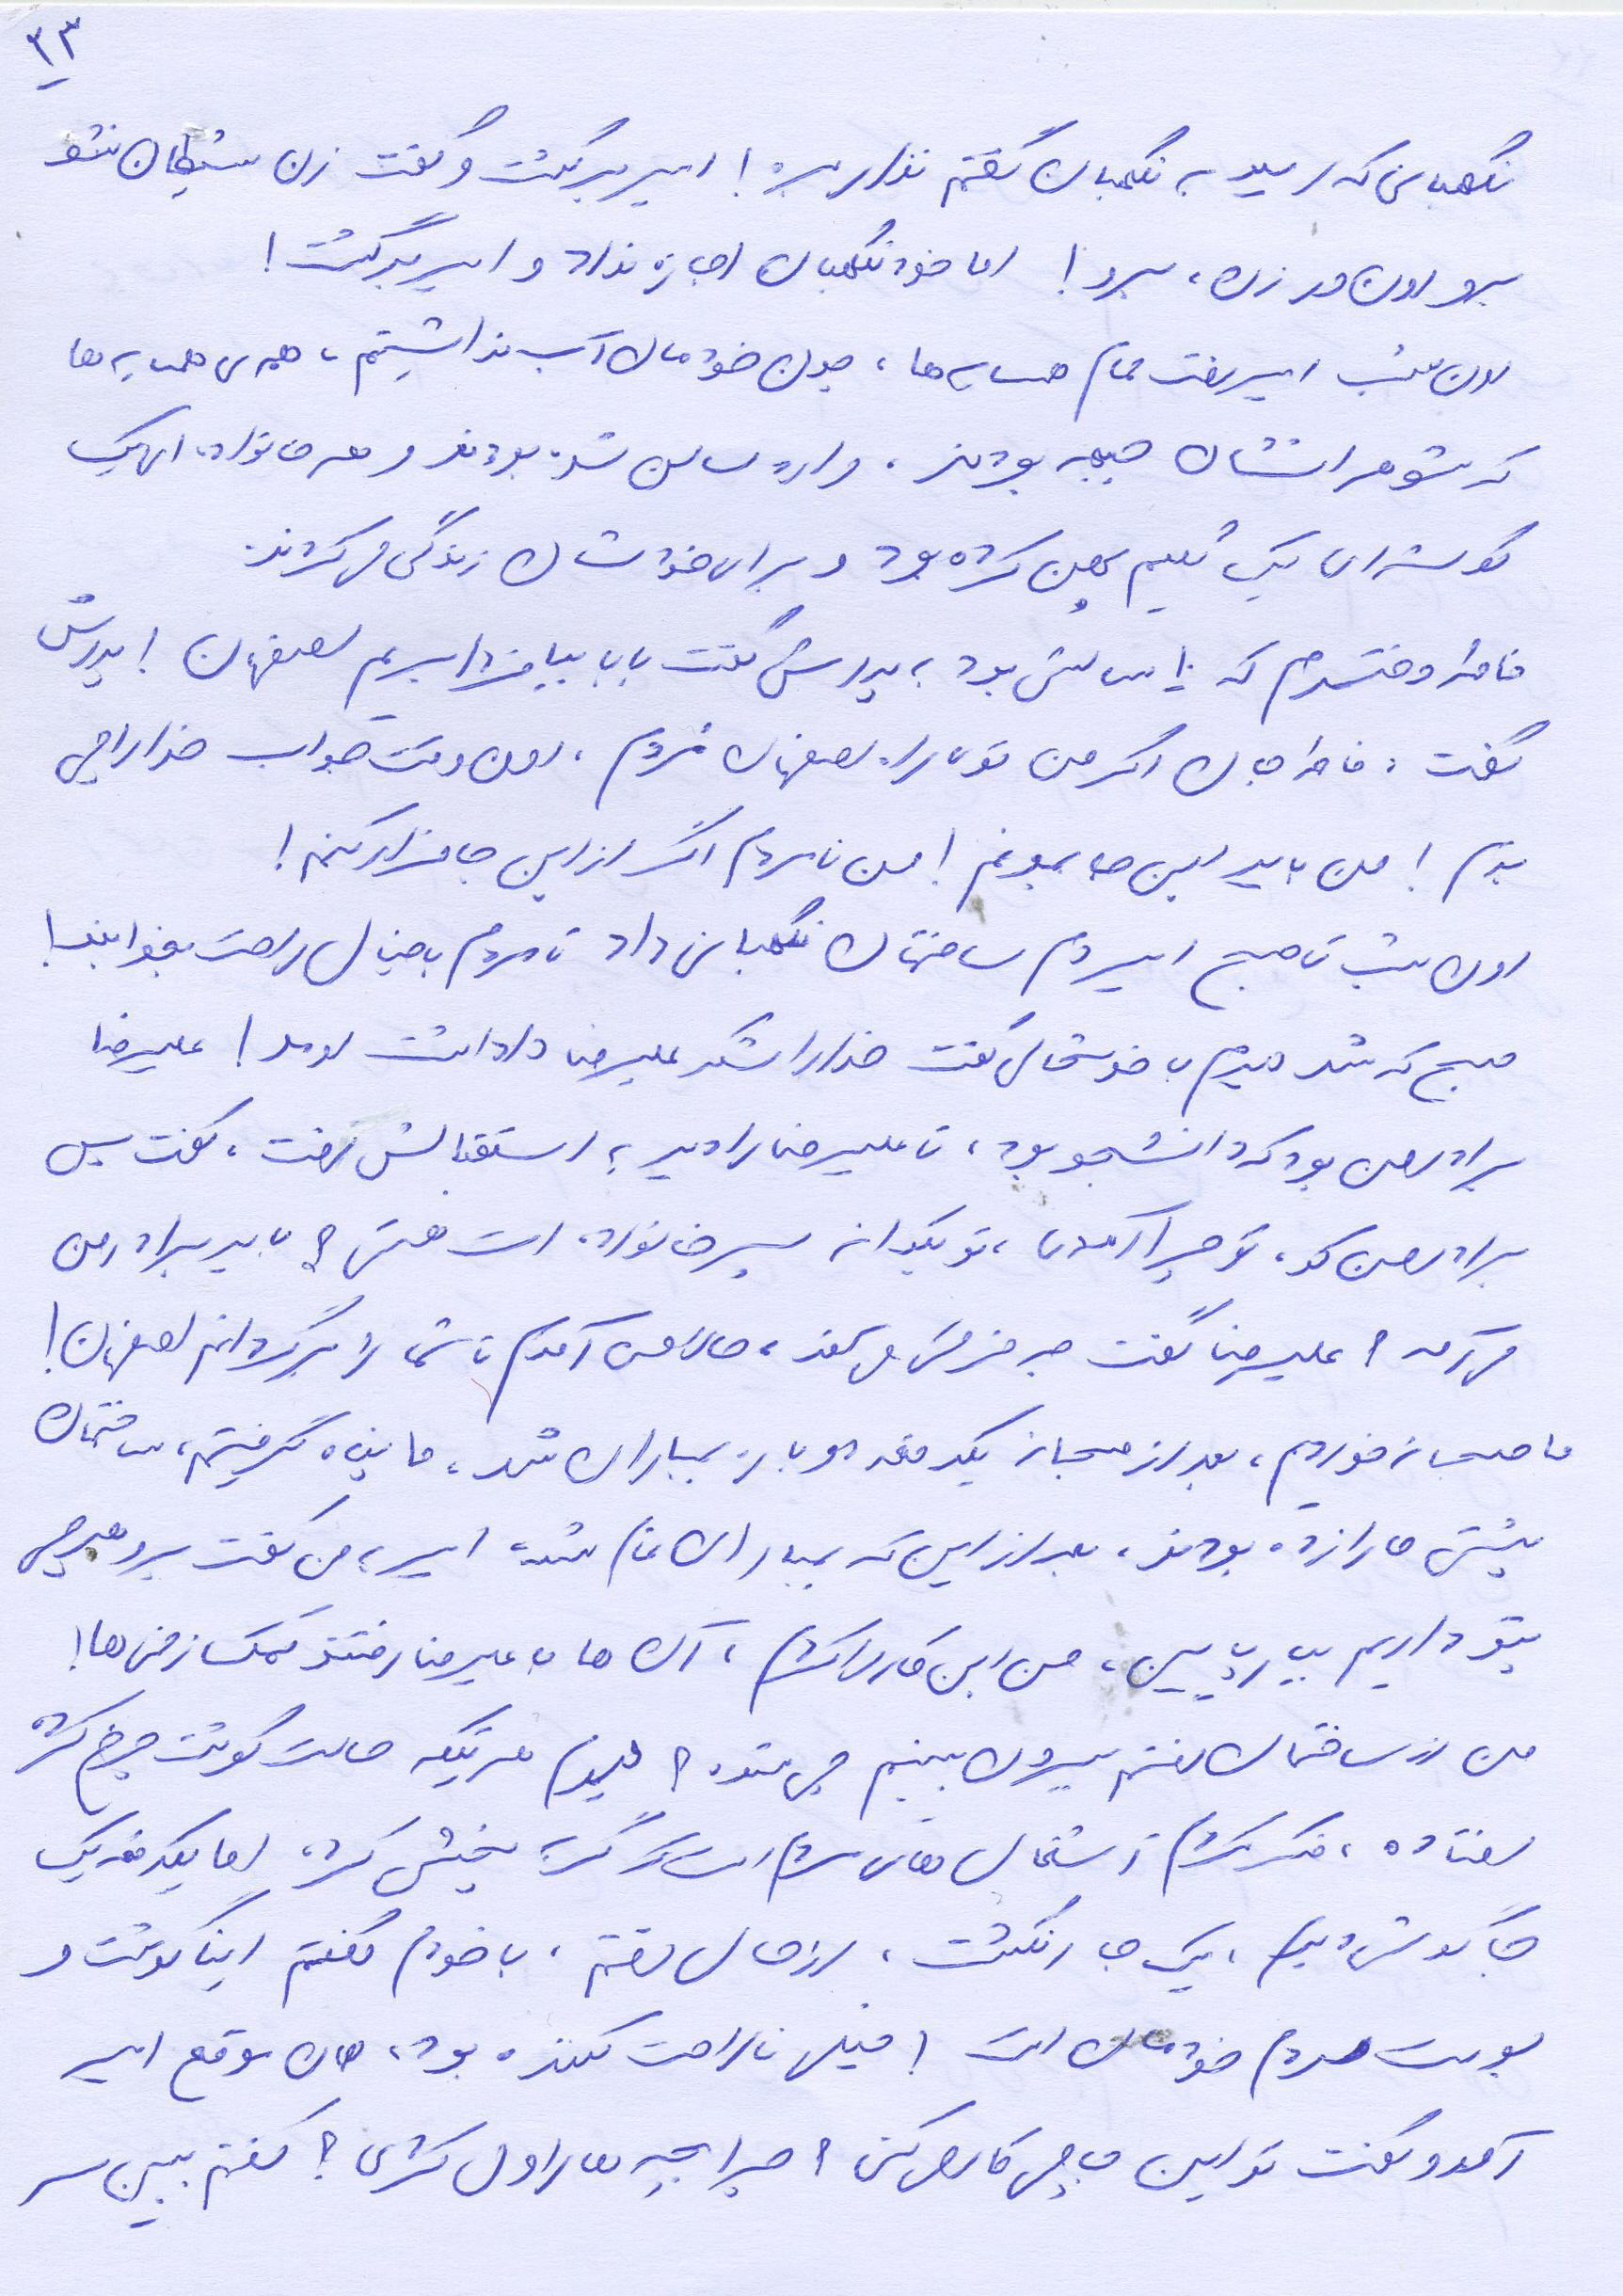 ۳۳
نگهبانی که رسید به نگهبان گفتم نذار بره! امیر برگشت و گفت زن شیطان نشو
برو اون ور زن، برو! اما خود نگهبان اجازه نداد و امیر برگشت!
اون شب امیر رفت تمام همسایه ها، چون خودمان آب نداشتیم، همه ی همسایه ها
که شوهرانشان جبهه بودند، وارد سالن شده بودند و هر خانواده ای یک
گوشه ای یک گلیم پهن کرده بود و برای خودشان زندگی می کردند.
فاطمه دخترم که ۱۰ سالش بود به پدرش گفت بابا بیا فردا بریم اصفهان! پدرش
گفت: فاطمه جان اگر من تو را به اصفهان بردم، اون وقت جواب خدا را چی
بدم! من باید این جا بمونم! من نامردم اگر از این جا فرار کنم!
اون شب تا صبح امیر دم ساختمان نگهبانی داد تا مردم با خیال راحت بخوابند!
صبح که شد دیدم با خوشحالی گفت خدا را شکر علیرضا داداشت اومد! علیرضا
برادر من بود که دانشجو بود، تا علیرضا را دید به استقبالش رفت، گفت پس
برادر من کو، تو چرا آمدی، تو یکدانه پسر خانواده ات هستی؟ باید برادر من
می آمد؟ علیرضا گفت چه فرقی می کند، حالا من آمدم تا شما را برگردانم اصفهان!
ما صبحانه خوردیم، بعد از صبحانه یکدفعه دوباره بمباران شد، ما پناه گرفتیم، ساختمان
پشتی ما را زده بودند، بعد از این که بمباران تمام شد، امیر به من گفت برو هر چی
پتو داریم بیار پایین، من این کار را کردم، آن ها با علیرضا رفتند کمک زخمی ها!
من از ساختمان رفتم بیرون ببینم چی شده؟ دیدم هر تیکه حالت گوشت چرخ کرده
افتاده، فکر کردم آشغال های مردم است که گربه پخش کرده، اما یکدفعه یک
جا گوش دیدم، یک جا انگشت، از حال رفتم، با خودم گفتم اینا گوشت و
پوست مردم خودمان است! خیلی ناراحت کننده بود، همان موقع امیر
آمد و گفت تو این جا چی کار می کنی؟ چرا بچه ها را ول کردی؟ گفتم ببین سر